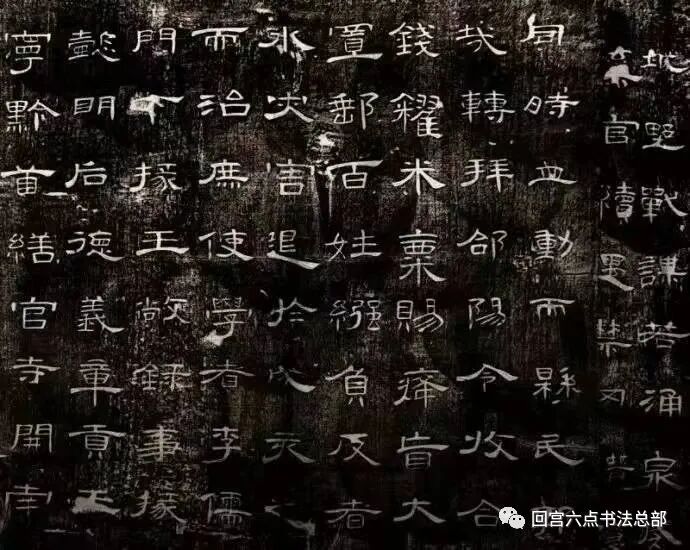 城野戰謀若涌泉威
棄官續遇禁冈
旬時並動而縣民
哉轉拜郃陽令收合
錢糴米粟賜癃盲大
置郵百姓繦負反者
水灾害退於戊亥之
而治庶使學者李儒
門下掾王敞錄事掾
懿明后德義章貢王
寧黔首繕官寺開南
回宫六点书法总部